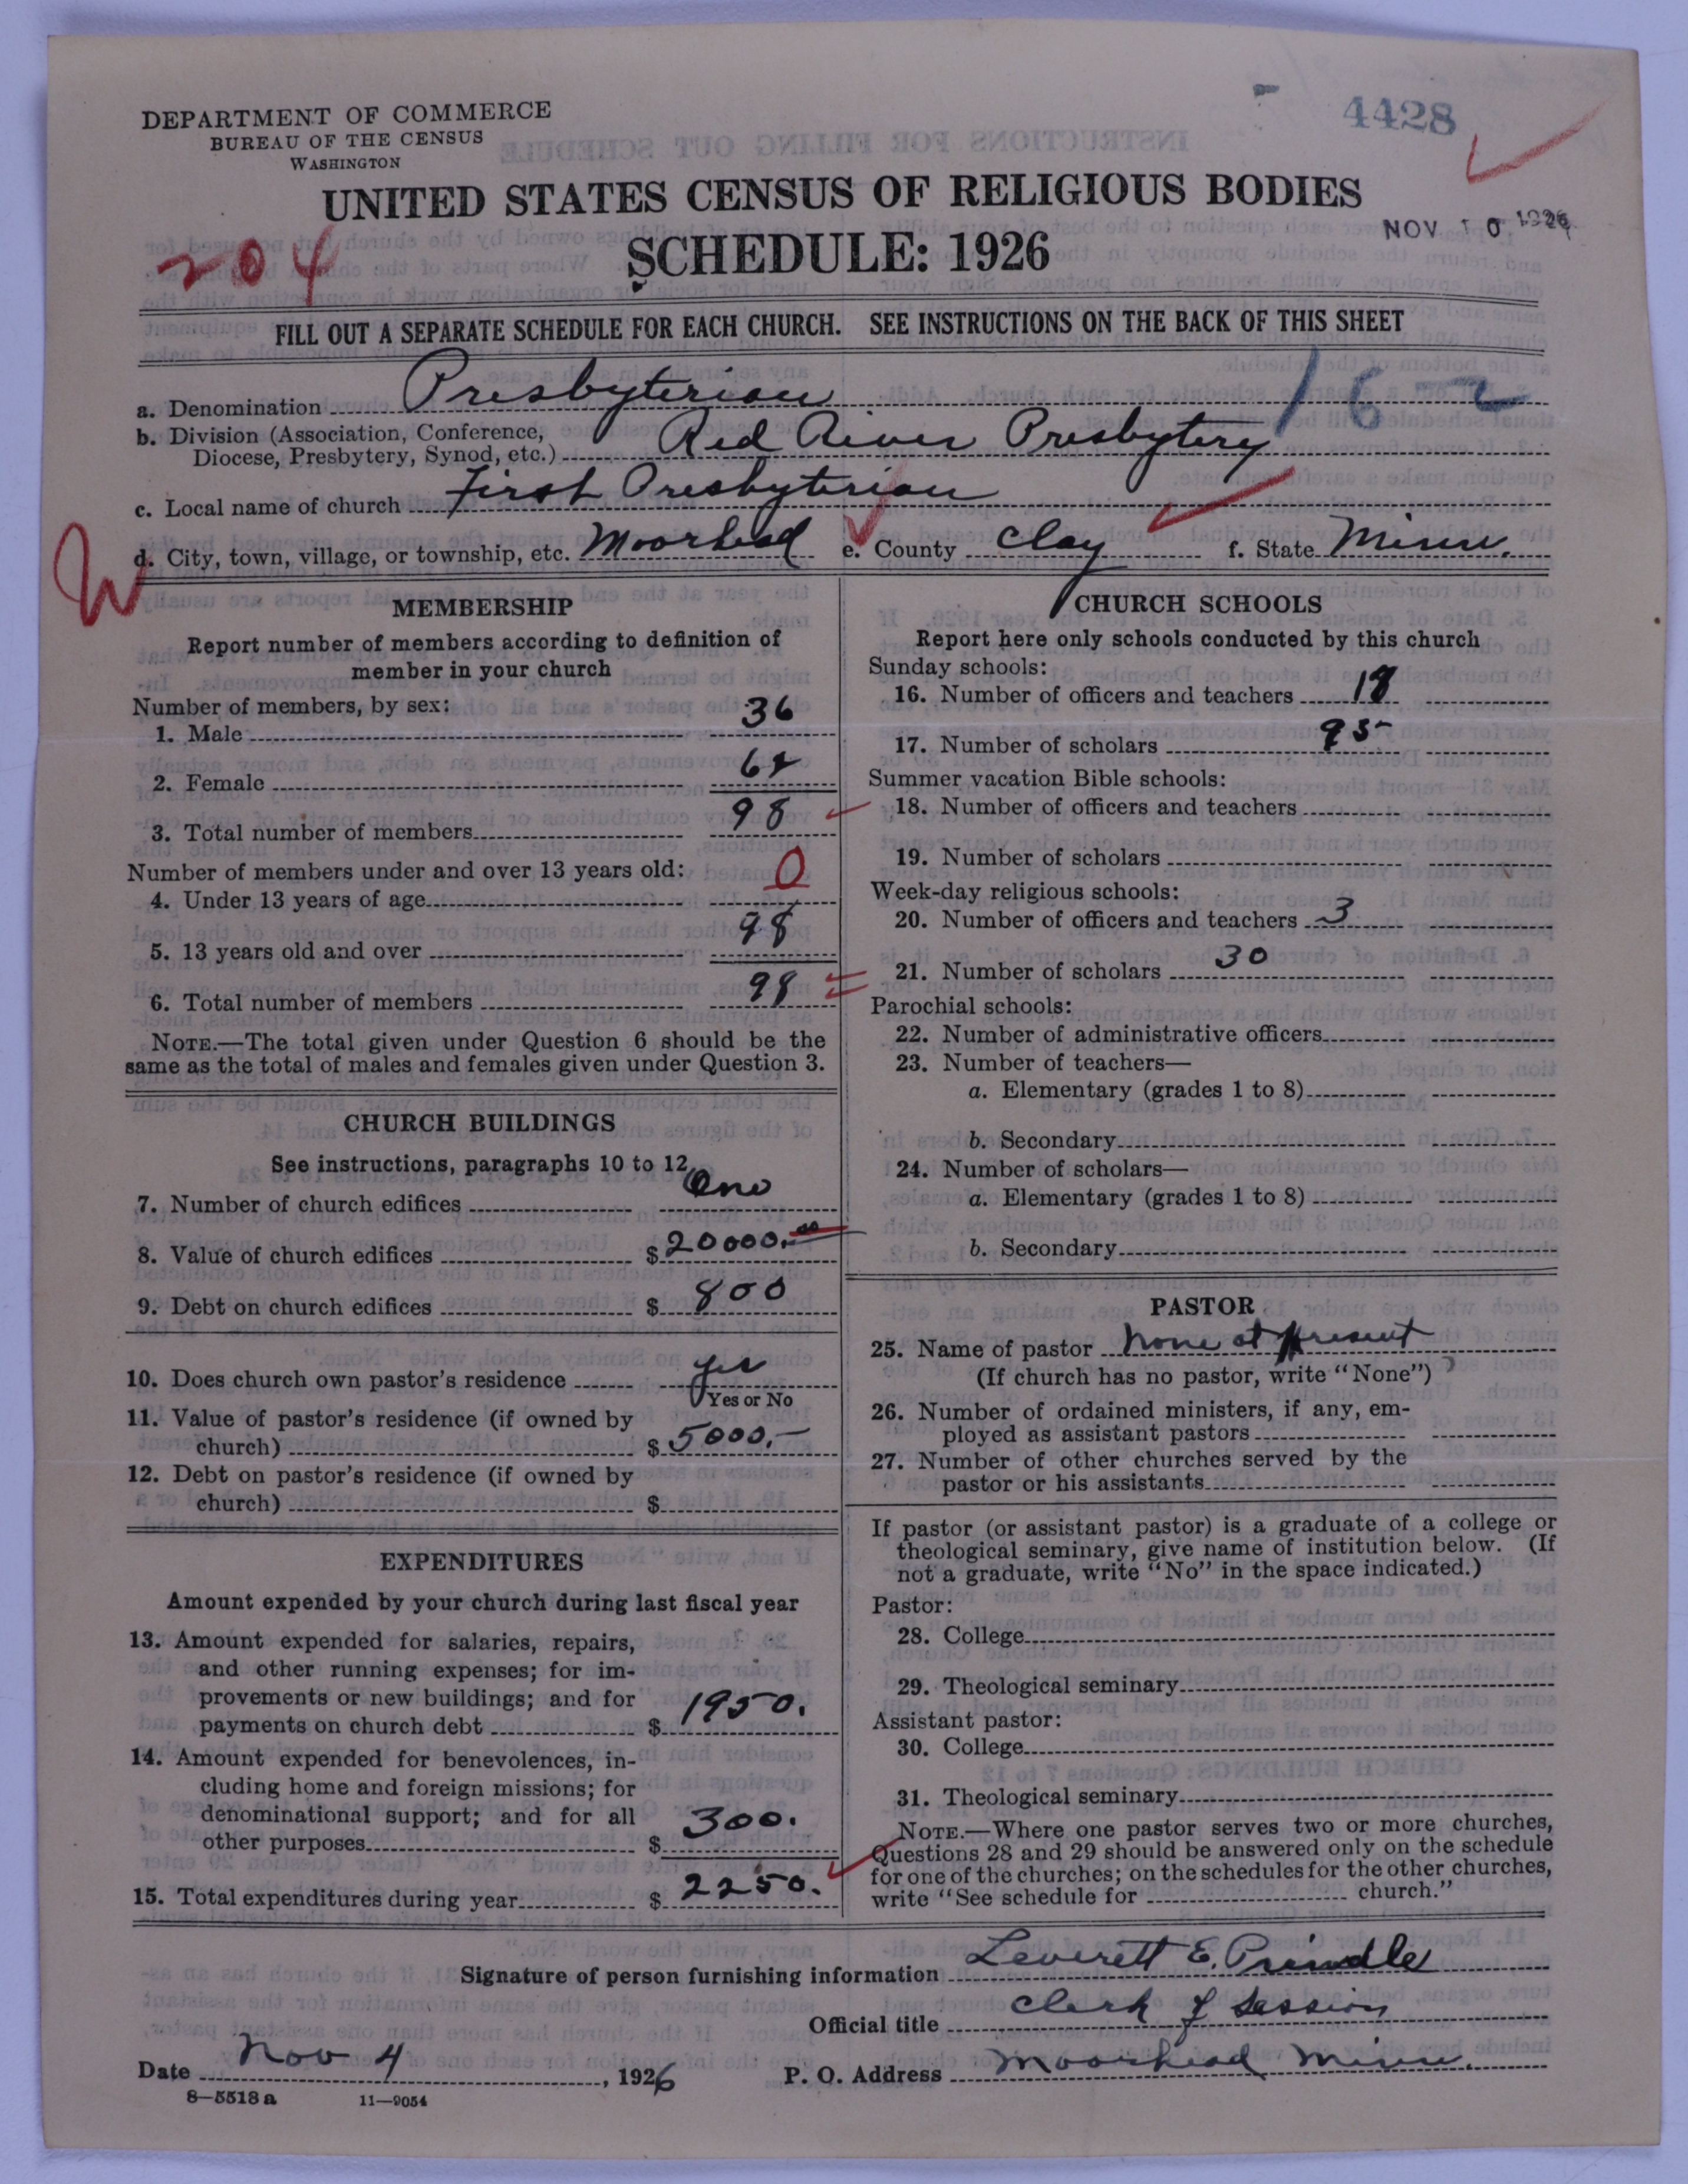 DEPARTMENT OF COMMERCE
BUREAU OF THE CENSUS
WASHINGTON
4428
UNITED STATES CENSUS OF RELIGIOUS BODIES
NOV 10 1926
204
SCHEDULE: 1926
FILL OUT A SEPARATE SCHEDULE FOR EACH CHURCH. SEE INSTRUCTIONS ON THE BACK OF THIS SHEET
a. Denomination Presbyterian
162
b. Division (Association, Conference, Diocese, Presbytery, Synod, etc.) Red River Presbytery
c. Local name of church First Presbyterian
W
d. City, town, village, or township, etc. Moorhead e. County Clay f. State Minn.
MEMBERSHIP
Report number of members according to definition of
member in your church
Number of members, by sex:
1. Male 36
2. Female 62
3. Total number of members 98
Number of members under and over 13 years old:
4. Under 13 years of age 0
5. 13 years old and over 98
6. Total number of members 98
NOTE.—The total given under Question 6 should be the
same as the total of males and females given under Question 3.
CHURCH BUILDINGS
See instructions, paragraphs 10 to 12
7. Number of church edifices One
8. Value of church edifices $20000.00
9. Debt on church edifices $ 800
10. Does church own pastor's residence yes
Yes or No
11. Value of pastor's residence (if owned by
church) $5000.-
12. Debt on pastor's residence (if owned by
church) $
EXPENDITURES
Amount expended by your church during last fiscal year
13. Amount expended for salaries, repairs,
and other running expenses; for im-
provements or new buildings; and for
payments on church debt $ 1950.
14. Amount expended for benevolences, in-
cluding home and foreign missions; for
denominational support; and for all
other purposes $ 300.
15. Total expenditures during year $ 2250.
CHURCH SCHOOLS
Report here only schools conducted by this church
Sunday schools:
16. Number of officers and teachers 18
17. Number of scholars 95
Summer vacation Bible schools:
18. Number of officers and teachers
19. Number of scholars
Week-day religious schools:
20. Number of officers and teachers 3
21. Number of scholars 30
Parochial schools:
22. Number of administrative officers
23. Number of teachers—
a. Elementary (grades 1 to 8)
b. Secondary
24. Number of scholars—
a. Elementary (grades 1 to 8)
b. Secondary
PASTOR
25. Name of pastor None at present
(If church has no pastor, write "None")
26. Number of ordained ministers, if any, em-
ployed as assistant pastors
27. Number of other churches served by the
pastor or his assistants
If pastor (or assistant pastor) is a graduate of a college or
theological seminary, give name of institution below. (If
not a graduate, write "No" in the space indicated.)
Pastor:
28. College
29. Theological seminary
Assistant pastor:
30. College
31. Theological seminary
NOTE.—Where one pastor serves two or more churches,
Questions 28 and 29 should be answered only on the schedule
for one of the churches; on the schedules for the other churches,
write "See schedule for church."
Signature of person furnishing information Leverett E. Prindle
Official title Clerk of Session
Date Nov 4, 1926 P. O. Address Moorhead Minn.
8—5518 a 11—9054